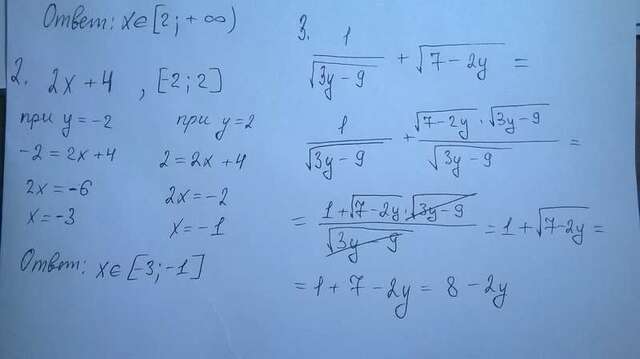 Ответ: x∈[2; +∞)
2. 2x+4, [-2; 2]
при y=-2 при y=2
-2=2x+4 2=2x+4
2x=-6 2x=-2
x=-3 x=-1
Ответ: x∈[-3; -1]
3. 1/√(3y-9) + √(7-2y) =
1/√(3y-9) + (√(7-2y) · √(3y-9))/√(3y-9) =
= (1+√(7-2y)·√(3y-9))/√(3y-9) = 1+√(7-2y) =
= 1+7-2y = 8-2y